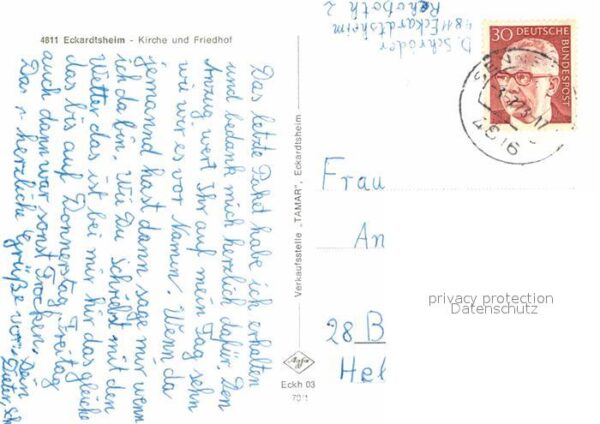 4811 Eckardtsheim - Kirche und Friedhof
Das letzte Paket habe ich erhalten
und bedank mich herzlich dafür. Den
Anzug wert Ihr auf mein Tag sehn
wie wir es vor Namen. Wenn da
jemannd hast dann sage mir wenn
ich da bin. Wie Du schribst mit den
Wetter das ist bei mir hir das gleiche
das bis auf Donnerstag, Freitag
auch dann war sonst Trocken.
Das n. herzliche Grüße von Dein
Dieter, Sch
Verkaufsstelle „TAMAR", Eckardtsheim
Eckh 03
D. Schröder
4811 Eckardtsheim
Rehoboth 2
30 DEUTSCHE
BUNDESPOST
4816
Frau
An
28 B
Hel
privacy protection
Datenschutz